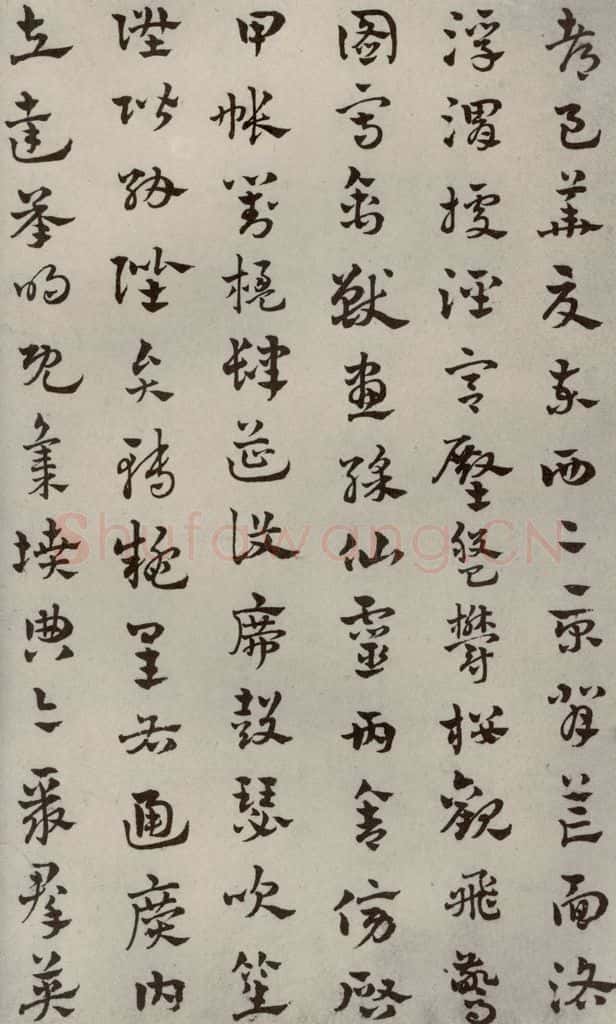 都邑華夏東西二京背芒面洛
浮渭據涇宮殿盤鬱樓觀飛驚
圖寫禽獸畫綵仙靈丙舍傍啓
甲帳對楹肆筵設席鼓瑟吹笙
陞階納陛弁轉疑星右通廣內
左達承明既集墳典亦聚羣英
Shufawang.CN